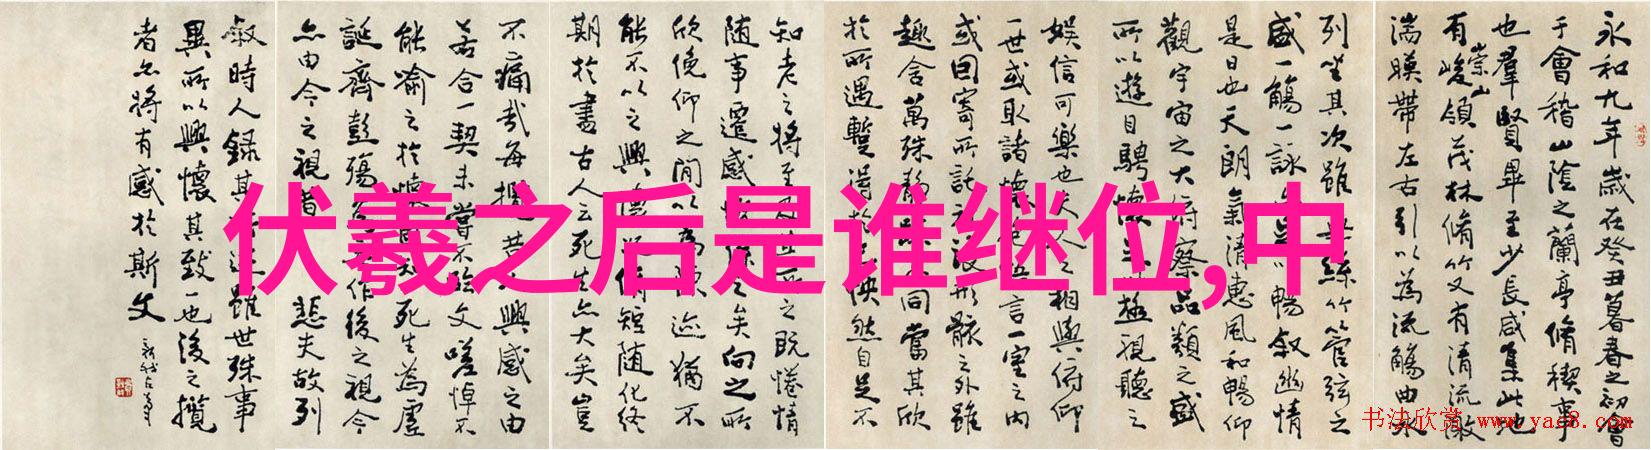 伏羲之后是谁继位,中
永和九年歲在癸丑暮春之初會
于會稽山陰之蘭亭脩稧事
也羣賢畢至少長咸集此地
有崇山峻領茂林脩竹又有清流激
湍暎帶左右引以為流觴曲水
列坐其次雖絲竹管弦之
盛一觴一詠以暢敘幽情
是日也天朗氣清惠風和暢仰
觀宇宙之大俯察品類之盛
所以遊目騁懷極視聽之
娛信可樂也夫人之相與俯仰
一世或取諸懷言一室之內
或因寄所託形骸之外雖
趣舍萬殊靜同當其欣
於所遇蹔得於怏然自足不
知老之將至之既惓情
隨事遷感之矣向之所
欣俛仰之間以為迹猶不
能不以之興懷短隨化終
期於盡古人云死生亦大矣豈
不痛哉每攬昔興感之由
若合一契未嘗不臨文嗟悼不
能喻之於懷死生為虛
誕齊彭殤作後之視今
亦由今之視昔悲夫故列
敘時人錄其雖世殊事
異所以興懷其致一也後之攬
者亦將有感於斯文
书法欣赏 www.yac8.com